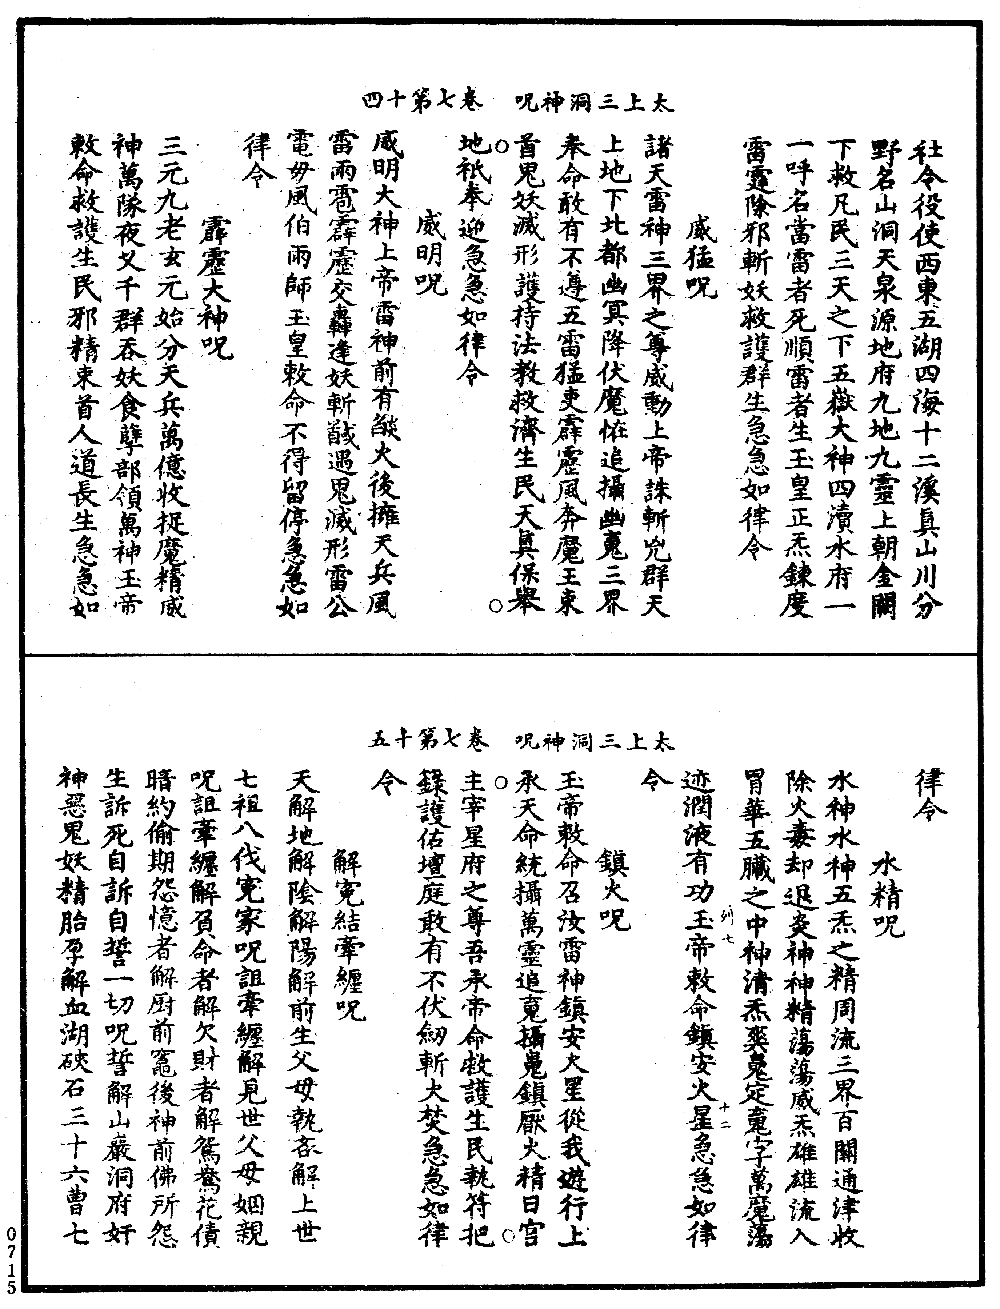 太上三洞神呪　卷七第十四
社令役使西東五湖四海十二溪真山川分
野名山洞天泉源地府九地九靈上朝金闕
下救凡民三天之下五嶽大神四瀆水府一
一呼名當雷者死順雷者生玉皇正炁鍊度
雷霆除邪斬妖救護群生急急如律令
威猛呪
諸天雷神三界之尊威動上帝誅斬兇群天
上地下北都幽冥降伏魔恠追攝幽䰟三界
奉命敢有不遵五雷猛吏霹靂風奔魔王束
首鬼妖滅形護持法教救濟生民天真保舉
地祇奉迎急急如律令
威明呪
威明大神上帝雷神前有燄火後擁天兵風
雷雨雹霹靂交轟逢妖斬馘遇鬼滅形雷公
電母風伯雨師玉皇敕命不得留停急急如
律令
霹靂大神呪
三元九老玄元始分天兵萬億收捉魔精威
神萬隊夜叉千群吞妖食孽部領萬神玉帝
敕命救護生民邪精束首人道長生急急如
太上三洞神呪　卷七第十五
律令
水精呪
水神水神五炁之精周流三界百關通津收
除火毒却退炎神神精蕩蕩威炁雄雄流入
胃華五臟之中神清炁爽䰟定䰟字萬魔蕩
迹潤液有功玉帝敕命鎮安火星急急如律
令
鎮火呪
玉帝敕命召汝雷神鎮安火星從我遊行上
承天命統攝萬靈追䰟攝䰟鎮厭火精日宮
主宰星府之尊吾承帝命救護生民執符把
籙護佑壇庭敢有不伏劒斬火焚急急如律
令
解冤結牽纏呪
天解地解陰解陽解前生父母執吝解上世
七祖八代冤家呪詛牽纏解見世父母姻親
呪詛牽纏解負命者解欠財者解鴛鴦花債
暗約偷期怨憶者解厨前竈後神前佛所怨
生訴死自訴自誓一切呪誓解山巖洞府奸
神惡鬼妖精胎孕解血湖硤石三十六曹七
列七
十二
0715